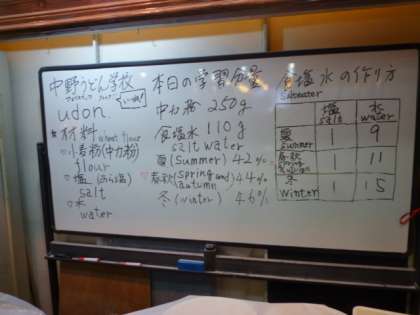 中野うどん学校
udon
材料
小麦粉(中力粉)
flour
塩
salt
水
water
本日の学習分量
中力粉 250g
食塩水 110g
salt water
夏(Summer) 42%
春秋(spring and autumn) 44%
冬(winter) 46%
食塩水の作り方
塩 salt 水 water
夏 Summer 1 9
春秋 1 11
冬 Winter 1 15